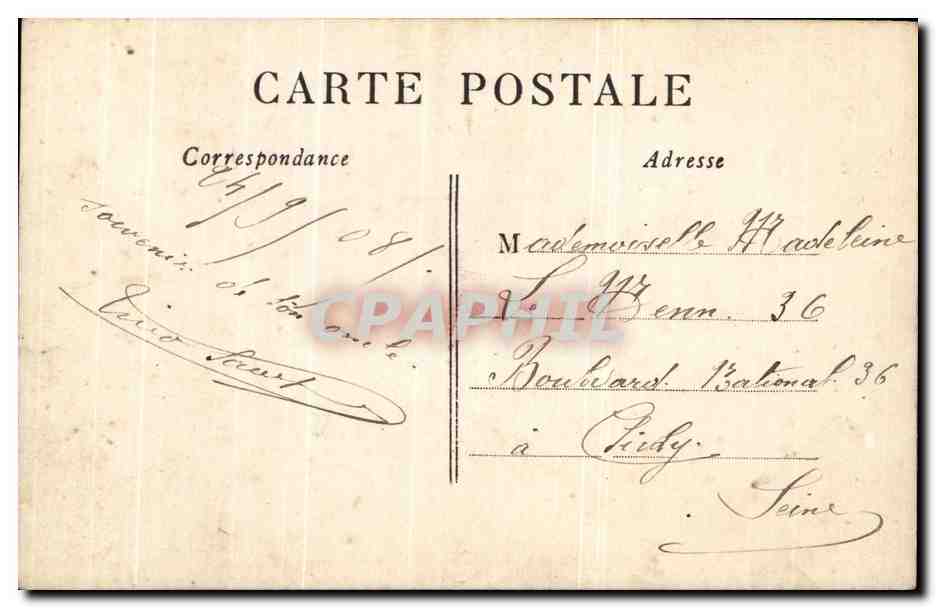 CARTE POSTALE
Correspondance
24/9/08/
souvenir de ton oncle.
Adresse
Mademoiselle Madeleine
Le Menn. 36
Boulvard. National 36
à Clichy.
Seine
CPAPHIL